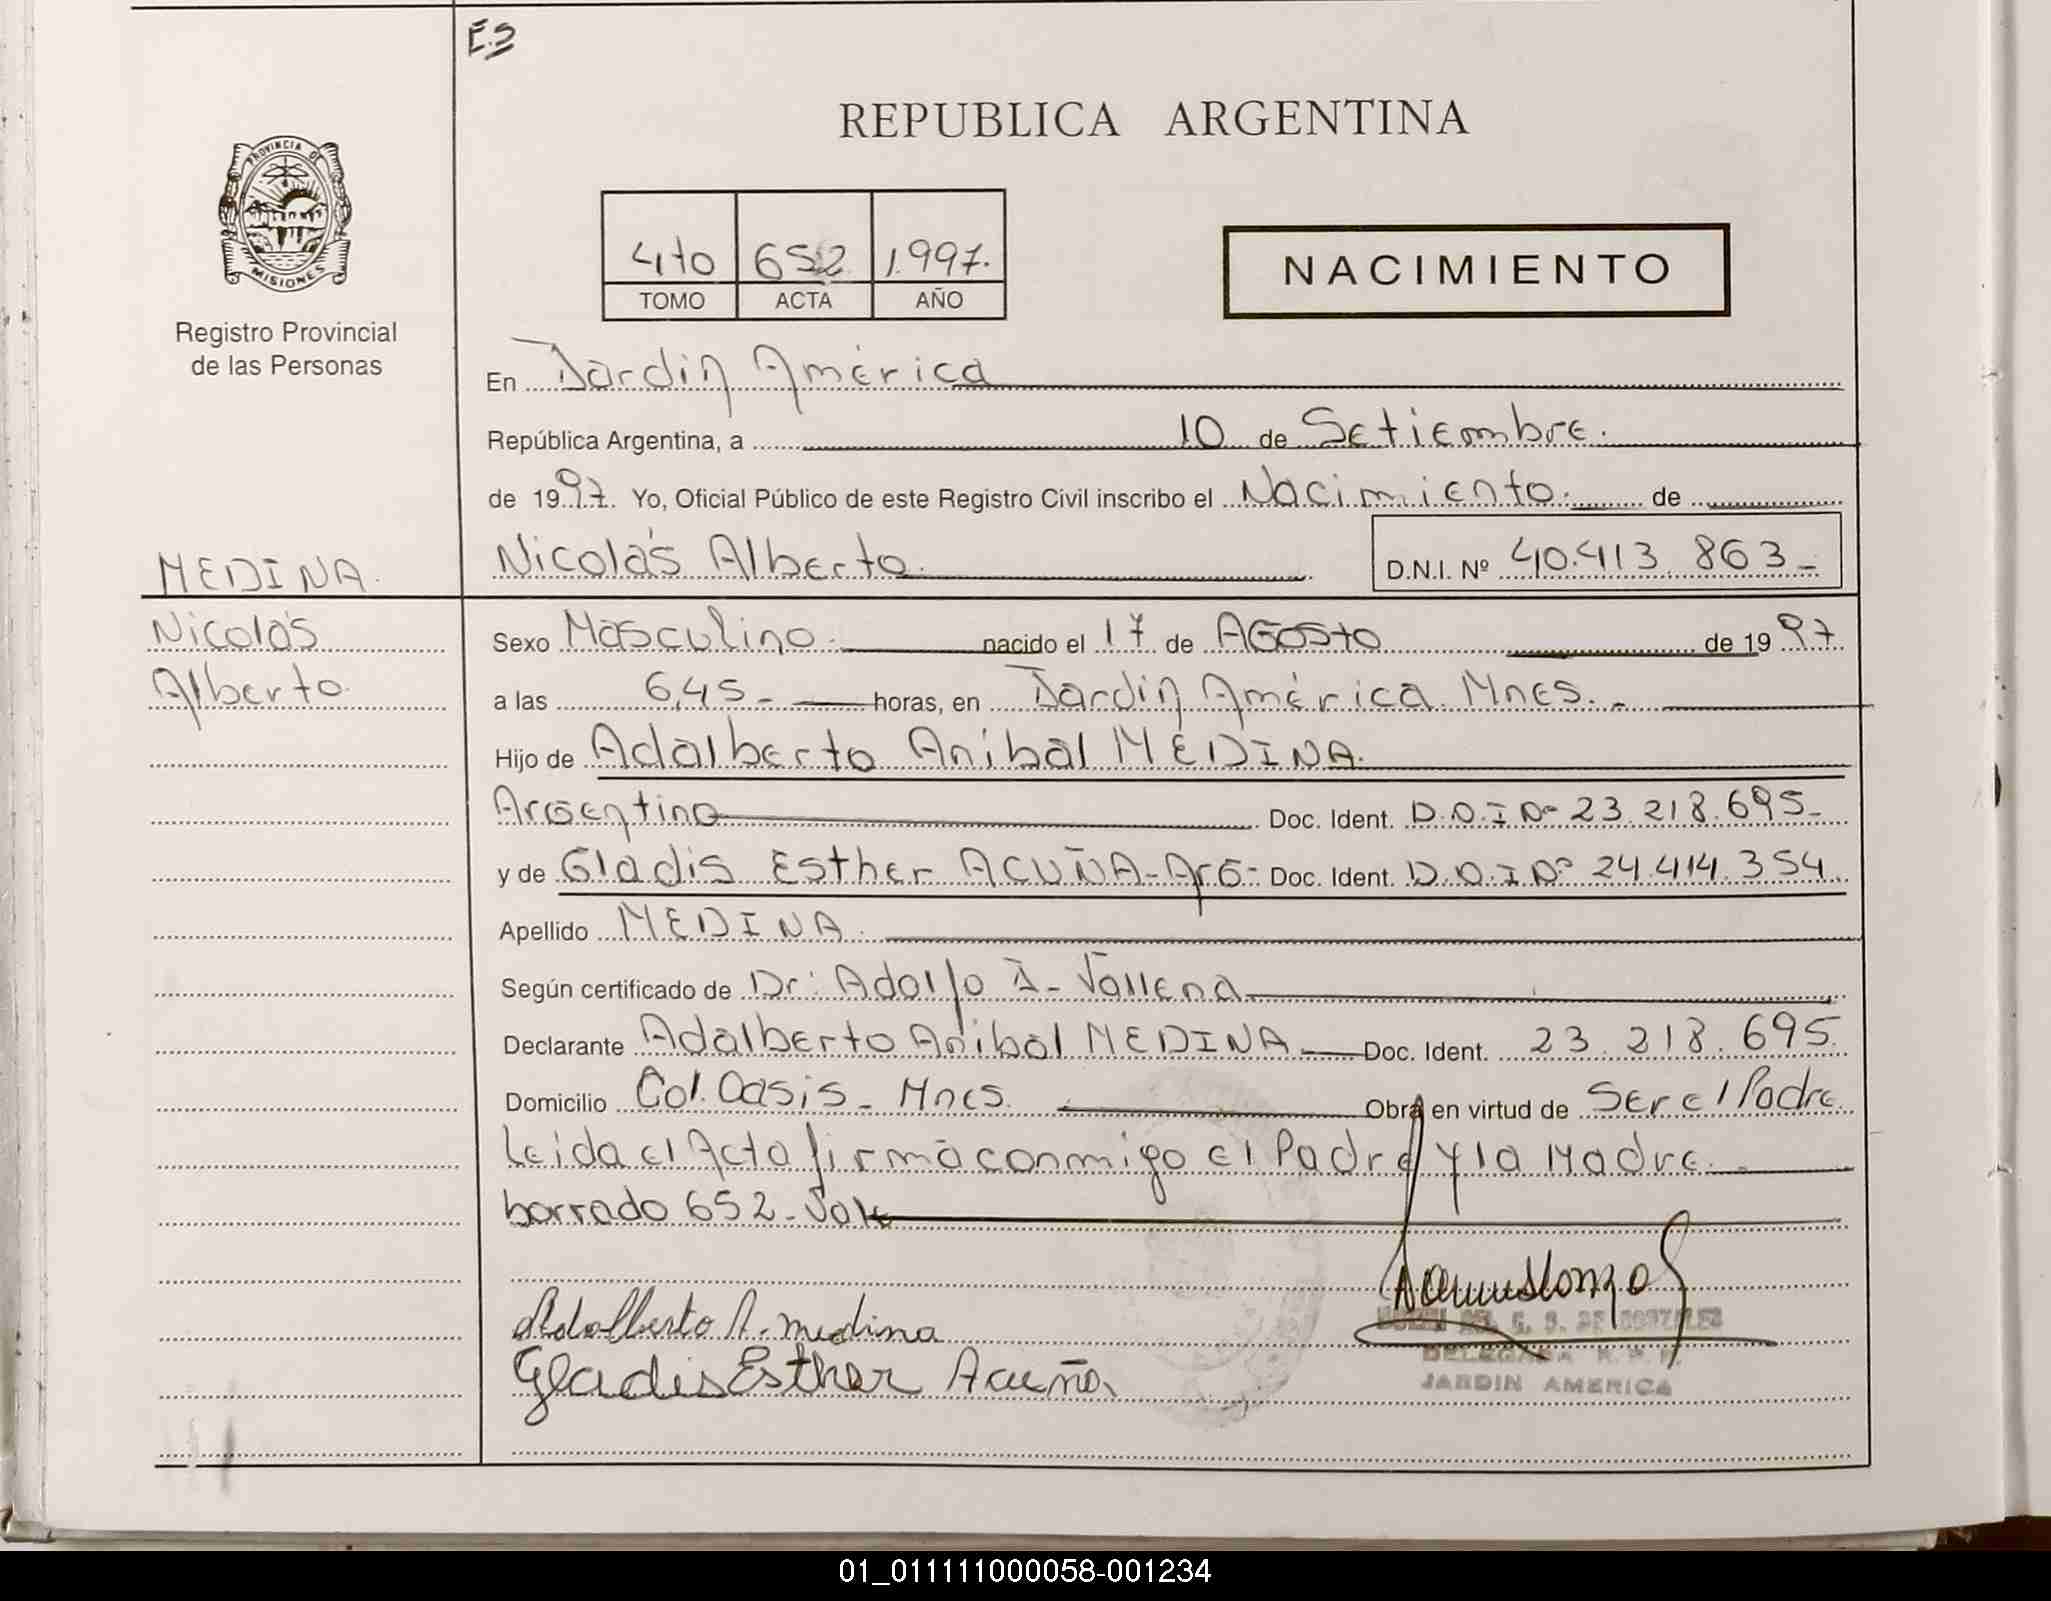 E.S
REPUBLICA ARGENTINA
PROVINCIA DE
MISIONES
Registro Provincial
de las Personas
4to 652 1.997.
TOMO ACTA AÑO
NACIMIENTO
En Jardín América
República Argentina, a 10 de Setiembre.
de 1997. Yo, Oficial Público de este Registro Civil inscribo el Nacimiento. de
MEDINA.
Nicolás Alberto. D.N.I. Nº 40.413.863-
Nicolás
Alberto.
Sexo Masculino. nacido el 17 de AGosto de 1997
a las 6,45- horas, en Jardín América. Mnes.-
Hijo de Adalberto Aníbal MEDINA.
Argentino Doc. Ident. D.N.I Nº 23.218.695-
y de Gladis Esther ACUÑA-ArG- Doc. Ident. D.N.I Nº 24.414.354.
Apellido MEDINA.
Según certificado de Dr: Adolfo
Declarante Adalberto Aníbal MEDINA Doc. Ident. 23.218.695.
Domicilio Col. Oasis- Mnes. Obra en virtud de Ser el Padre
Leida el Acta firma conmigo el Padre y la Madre.
borrado 652-Vale
Adalberto A. medina
Gladis Esther Acuña
DELEGADA R.P.P.
JARDIN AMERICA
01_011111000058-001234